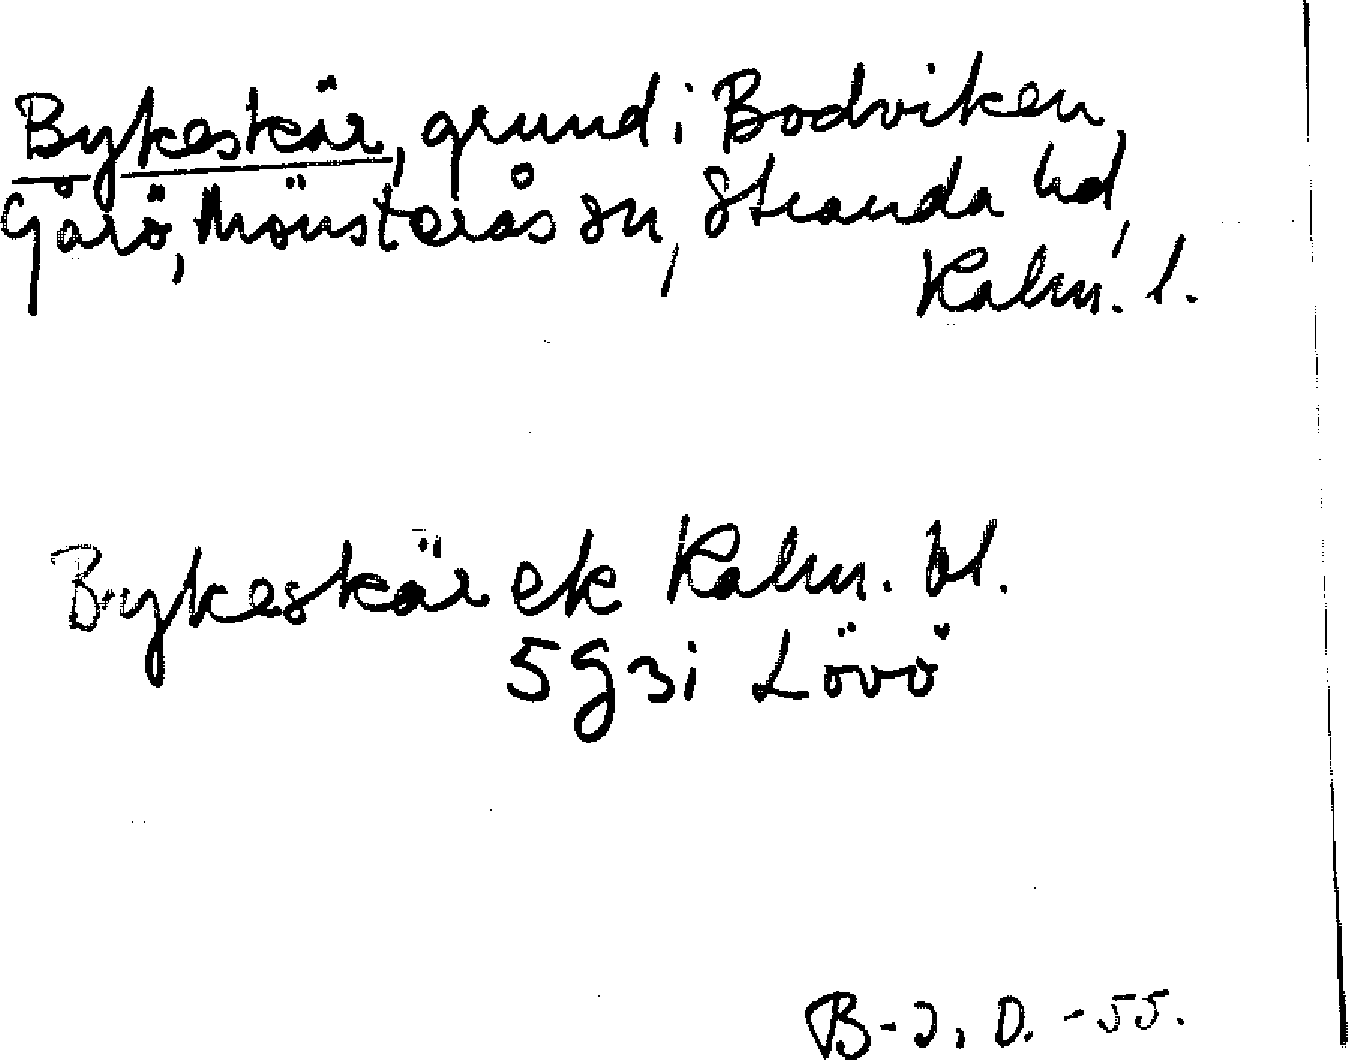 Bykeskär, grund i Bodviken,
Gårö, Mönsterås sn, Stranda hd,
Kalm. l.
Bykeskär ek Kalm. bl.
5G3i Lövö
B-J. O. -55.